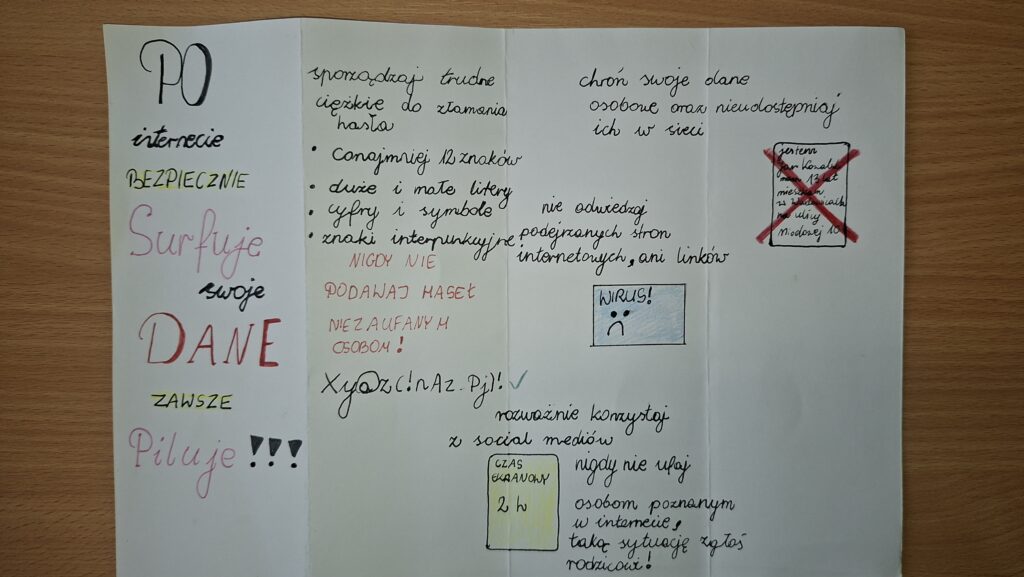 PO
internecie
BEZPIECZNIE
Surfuję
swoje
DANE
ZAWSZE
Piluję !!!
sporządzaj trudne
ciężkie do złamania
hasła
• conajmniej 12 znaków
• duże i małe litery
• cyfry i symbole
• znaki interpunkcyjne
NIGDY NIE
PODAWAJ HASEŁ
NIEZAUFANYM
OSOBOM!
Xy@z(!nAz-Pj)! ✓
chroń swoje dane
osobowe oraz nieudostępniaj
ich w sieci
jestem
Jan Kowal
mam 13 lat
mieszkam
na ulicy
miodowej 10
nie odwiedzaj
podejrzanych stron
internetowych, ani linków
WIRUS!
rozważnie korzystaj
z social mediów
CZAS
EKRANOWY
2 h
nigdy nie ufaj
osobom poznanym
w internecie,
taką sytuację zgłoś
rodzicowi!